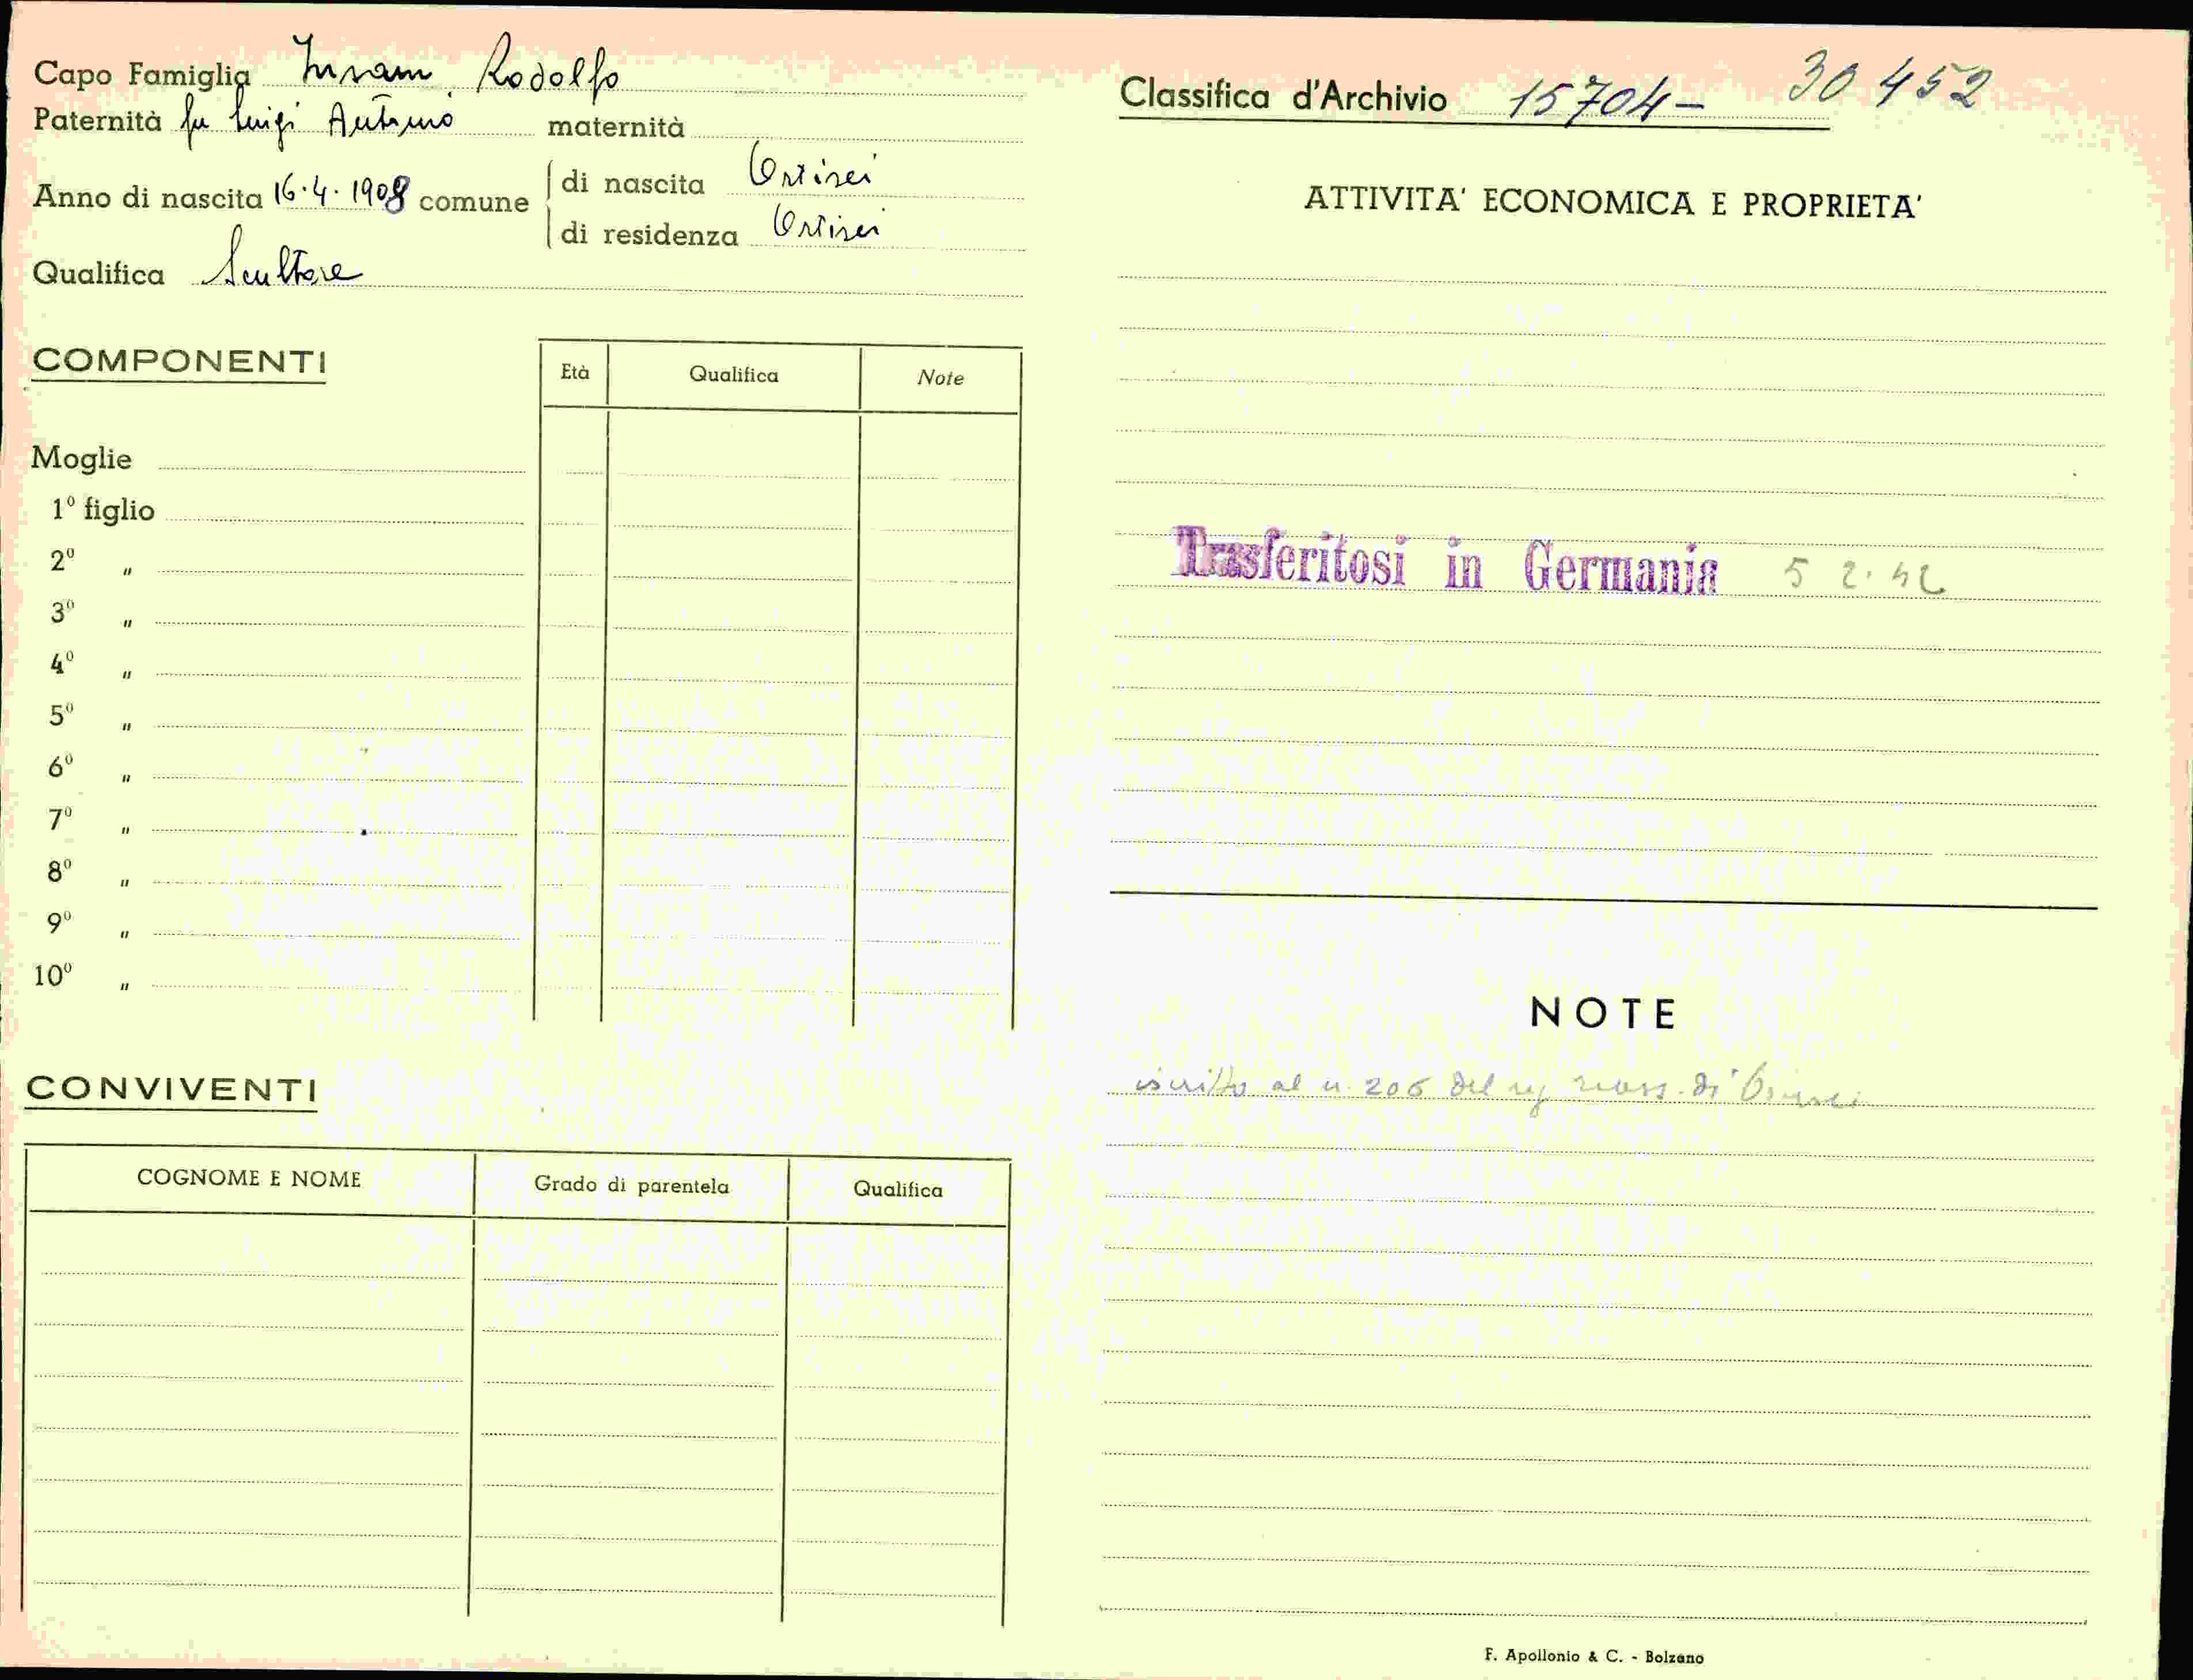 Capo Famiglia Insam Rodolfo
Paternità fu Luigi Antonio maternità
Anno di nascita 16.4.1908 comune di nascita Ortisei
di residenza Ortisei
Qualifica Scultore
COMPONENTI
Età Qualifica Note
Moglie
1º figlio
2º "
3º "
4º "
5º "
6º "
7º "
8º "
9º "
10º "
CONVIVENTI
COGNOME E NOME Grado di parentela Qualifica
Classifica d'Archivio 15704- 30452
ATTIVITA' ECONOMICA E PROPRIETA'
Trasferitosi in Germania 5 2.42
NOTE
iscritto al n. 206 del reg riass. di Ortisei
F. Apollonio & C. - Bolzano